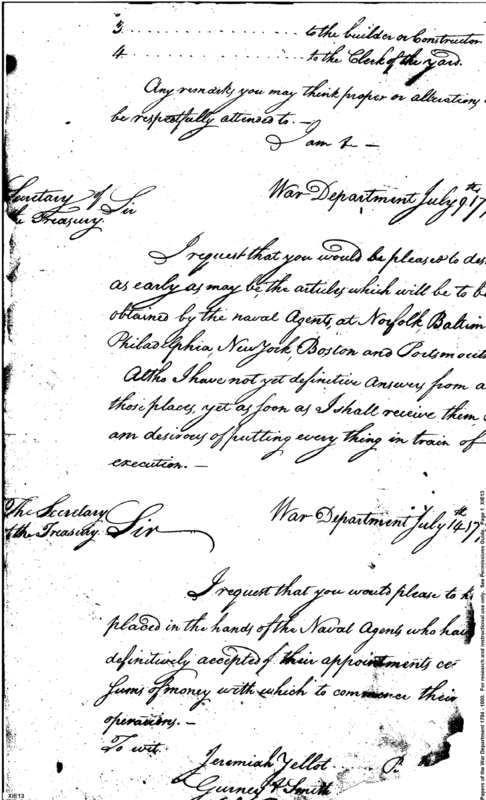 3 . . . . . . . . . . . . . . . . . to the builder or Constructor
4 . . . . . . . . . . . . . . . . . to the Clerk of the yard.
Any remarks you may think proper or alterations
be respectfully attended to. —
I am &c —
Secretary of
the Treasury
Sir
War Department July 9th 17
I request that you would be pleased to des
as early as may be, the articles which will be to be
obtained by the naval Agents, at Norfolk, Baltim
Philadelphia, New York, Boston and Portsmouth
Altho I have not yet definitive answers from a
those places, yet as soon as I shall receive them,
am desirous of putting every thing in train of
execution. —
The Secretary
of the Treasury.
Sir
War Department July 14th 17
I request that you would please to
placed in the hands of the Naval Agents who have
definitively accepted of their appointments cer
Sums of money with which to commence their
operations. —
To wit.
Jeremiah Yellot
Gurney & Smith
Papers of the War Department 1784 - 1800. For research and instructional use only. See Permissions Guide. Page 1 XIE13
XIE13